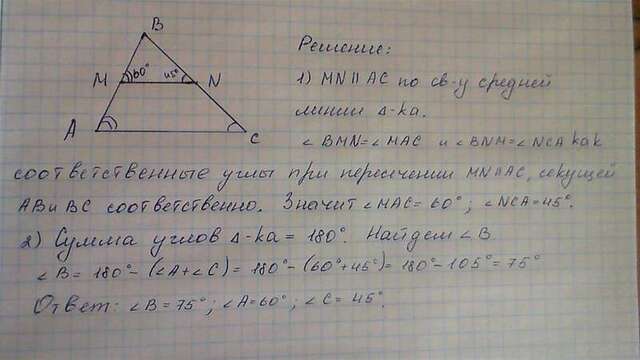 B
M 60° 45° N
A C
Решение:
1) MN || AC по св-у средней
линии Δ-ка.
∠BMN=∠MAC и ∠BNM=∠NCA как
соответственные углы при пересечении MN||AC, секущей
AB и BC соответственно. Значит ∠MAC=60°; ∠NCA=45°.
2) Сумма углов Δ-ка = 180°. Найдем ∠B
∠B = 180° - (∠A+∠C) = 180° - (60°+45°) = 180° - 105° = 75°
Ответ: ∠B=75°; ∠A=60°; ∠C=45°.